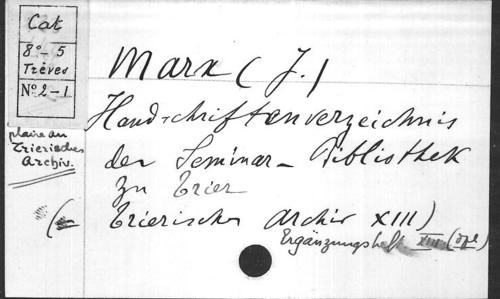 Cat
8°-5
Trèves
N° 2-1
Marx (J.)
Handschriftenverzeichnis
der Seminar-Bibliothek
zu Trier
(Trierisches Archiv XIII)
Ergänzungsheft XIII
Trierisches
Archiv.